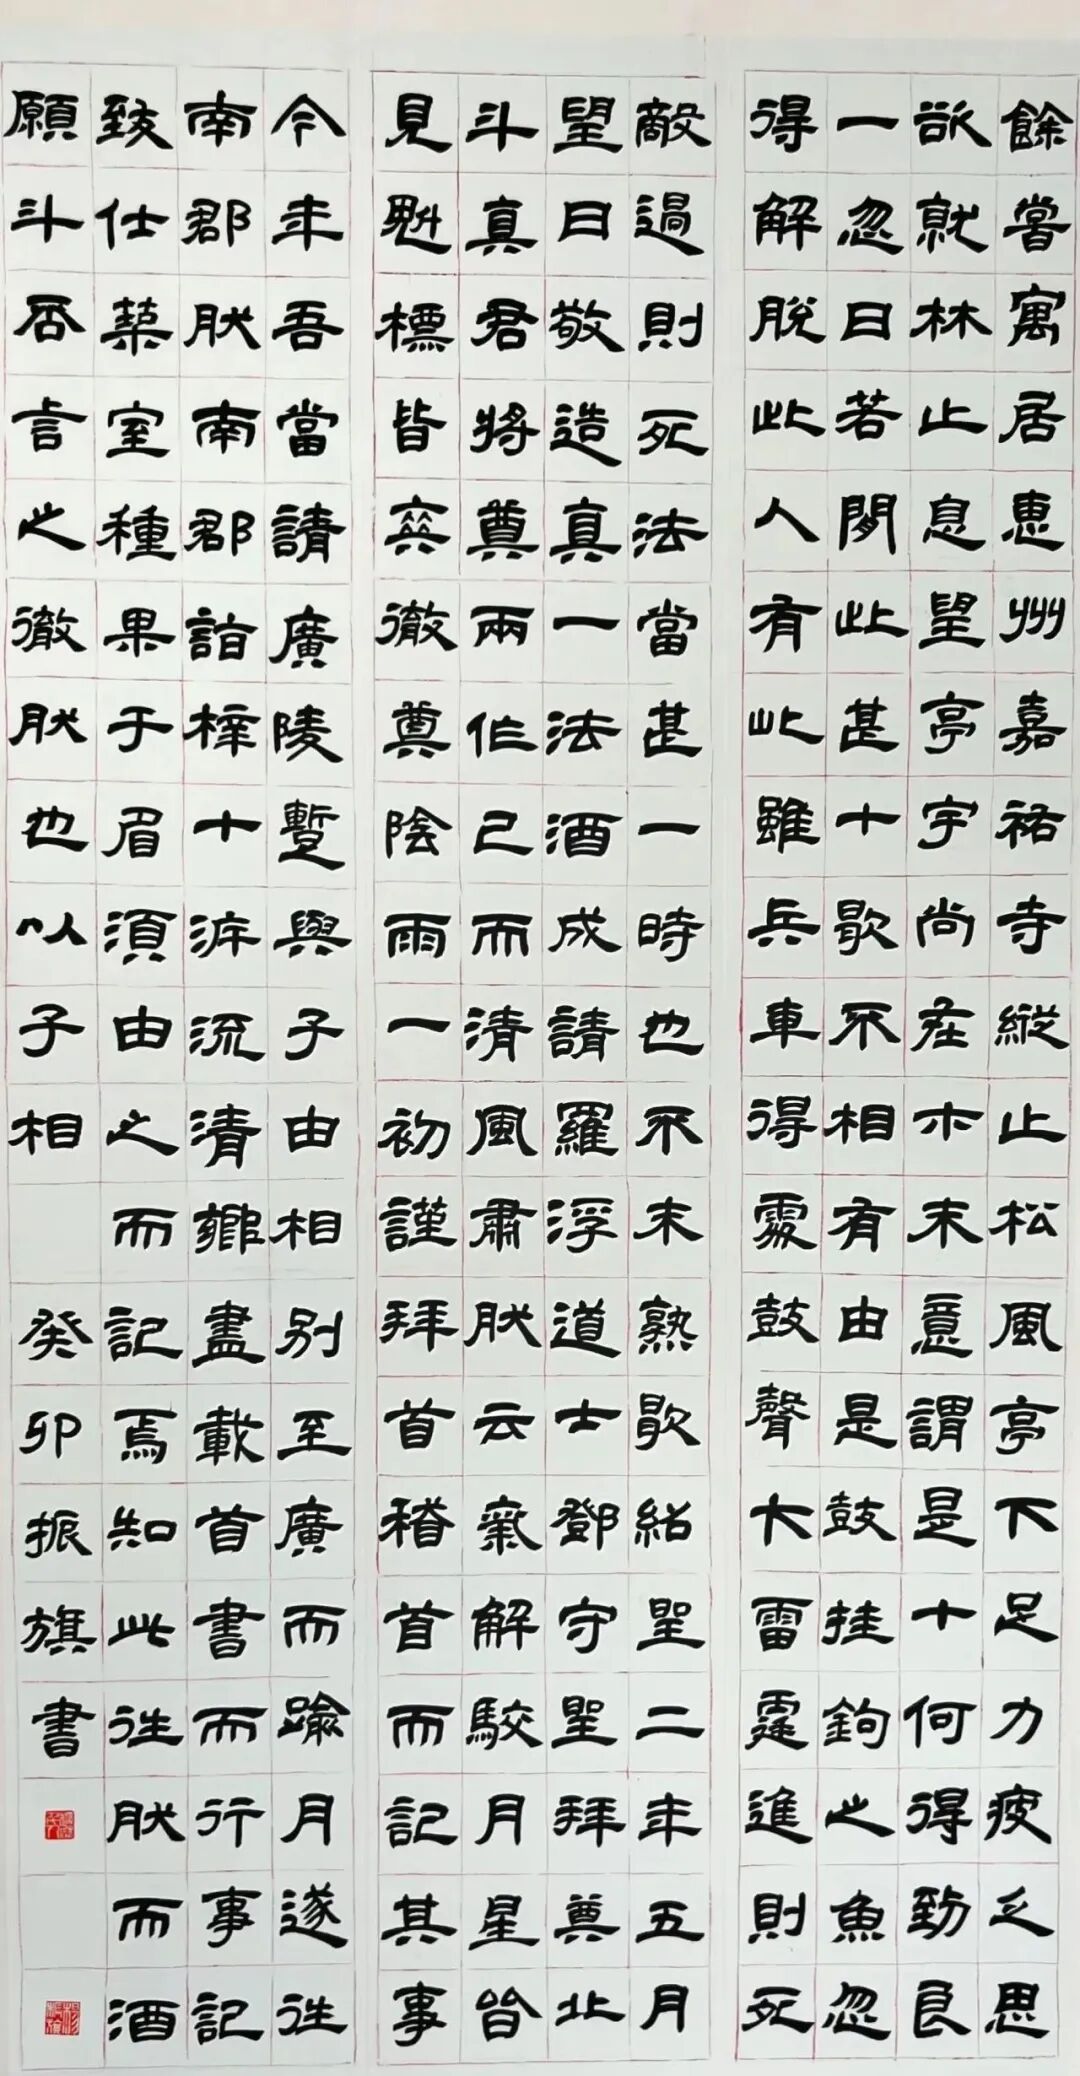 餘嘗寓居惠州嘉祐寺縱止松風亭下足力疲乏思
欲就林止息望亭宇尚在木末意謂是十何得到良
一忽日若閒此甚十歇不相有由是鼓挂鉤之魚忽
得解脫此人有此雖兵車得處鼓聲大雷霆進則死
敵過則死法當甚一時也不末熟歇紹聖二年五月
望日敬造真一法酒成請羅浮道士鄧守聖拜奠北
斗真君將奠兩作己而清風肅然云氣解駮月星皆
見魁標皆爽徹奠陰雨一初謹拜首稽首而記其事
今年吾當請廣陵暫與子由相別至廣而踰月遂往
南郡然南郡詣梓十泝流清鄉盡載首書而行事記
致仕築室種果于眉須由之而記焉知此往然而酒
願斗否言之徹然也以子相
癸卯振旗書